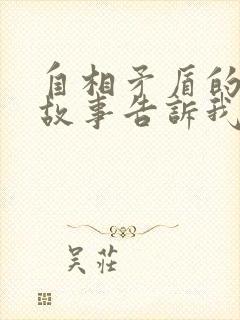 自相矛盾的
故事告訴我
吴莊